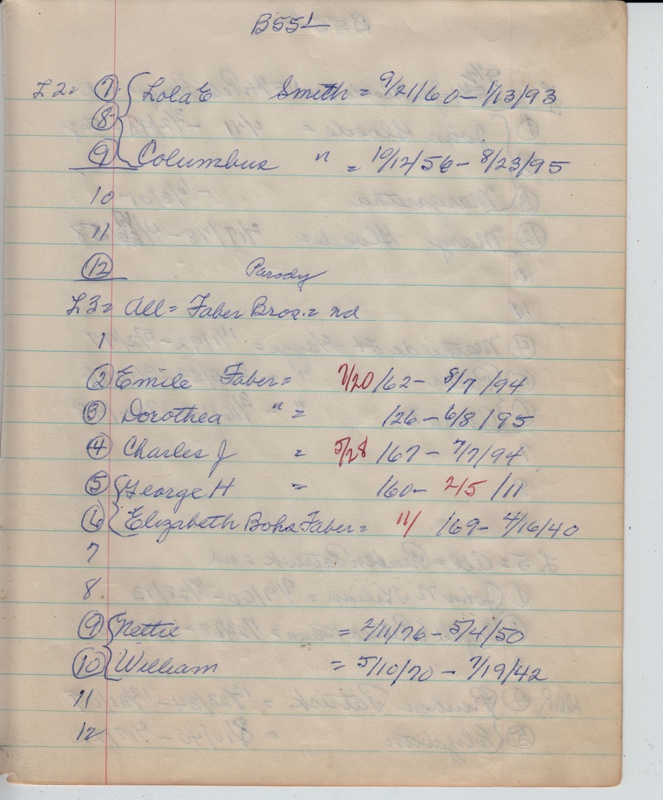 B55L
L2= 7. { Lola E Smith = 9/21/60 - 1/13/93
8.
9 { Columbus " = 10/12/56 - 8/23/95
10
11
12 Parody
L3= All= Faber Bros.= nd
1
2 Emile Faber = 7/20/62- 8/7/94
3 Dorothea " = /26- 6/8/95
4 Charles J = 5/28/67- 7/7/94
5 { George H = /60- 2/5/11
6 { Elizabeth Bohs Faber= 11/ /69- 4/16/40
7
8
9 { Nettie = 2/11/76- 5/4/50
10 { William = 5/10/70- 7/19/42
11
12